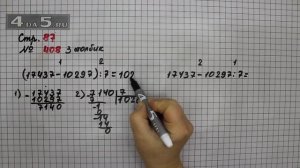 4DA5.RU
Стр. 87
№ 408 3 столбик
1 2
(17437-10297):7=102
2 1
17437-10297:7=
1) -17437
10297
7140
2) 7140 7
7 1020
14
14
0